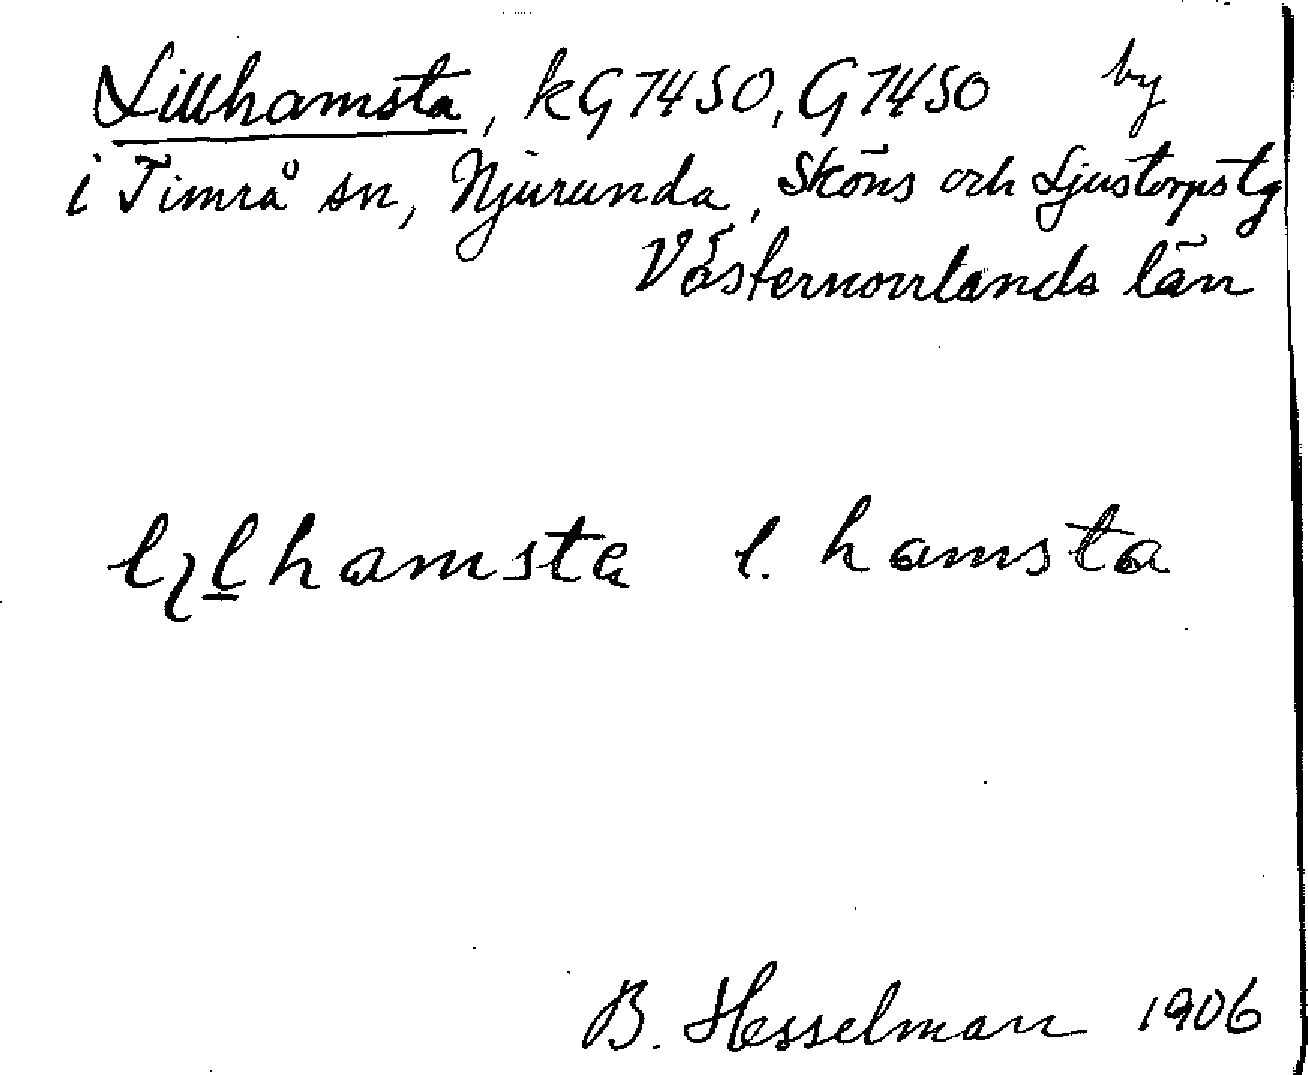 Lillhamsta, kG7450, G7450 by
i Timrå sn, Njurunda, Sköns och Ljustorps tg
Västernorrlands län
lɩl̲hamsta l. hamsta
B. Hesselman 1906